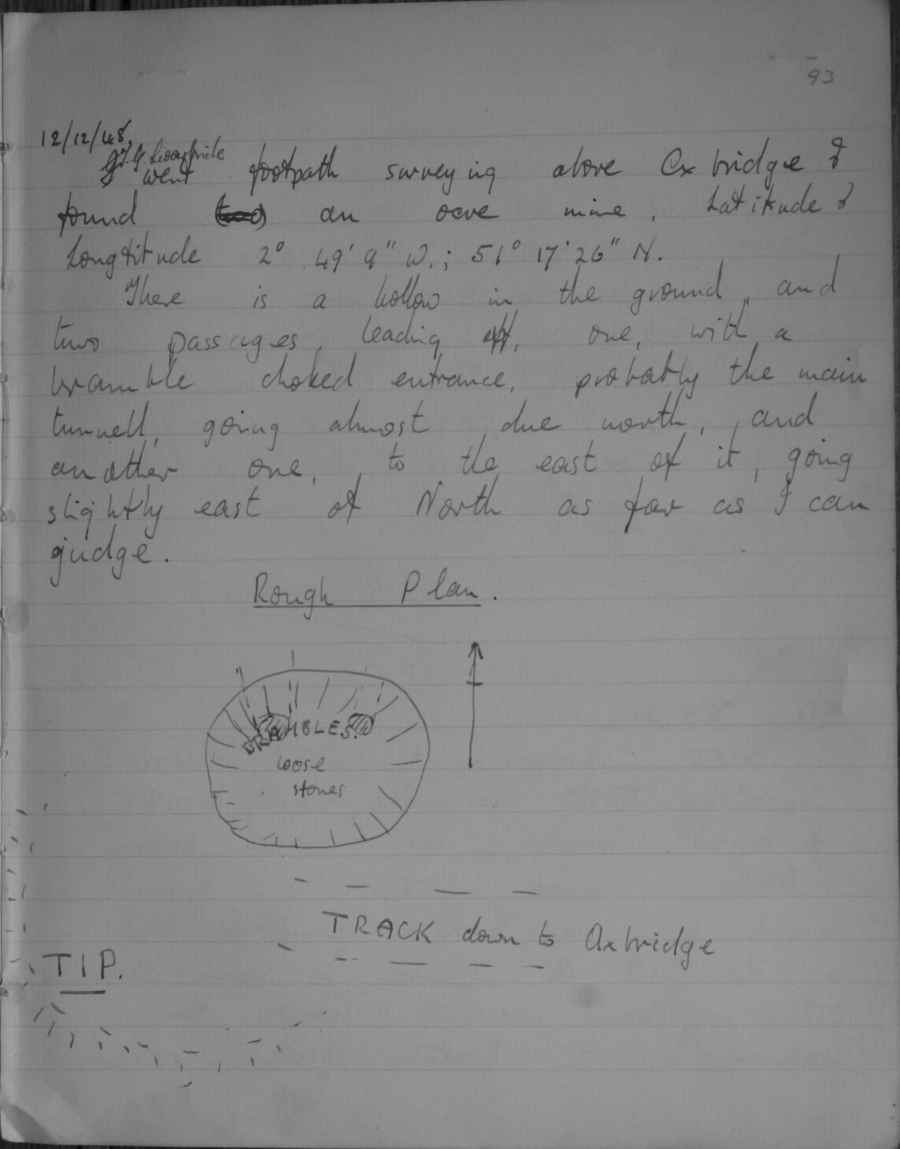 93
12/12/48.
went footpath surveying above Axbridge &
found an ocre mine. Latitude &
Longtitude 2° 49' 9" W.; 51° 17' 26" N.
There is a hollow in the ground, and
two passages, leading off, one, with a
bramble choked entrance, probably the main
tunnell, going almost due north, and
another one, to the east of it, going
slightly east of North as far as I can
judge.
Rough Plan.
BRAMBLES.
loose
stones
TRACK down to Axbridge
TIP.